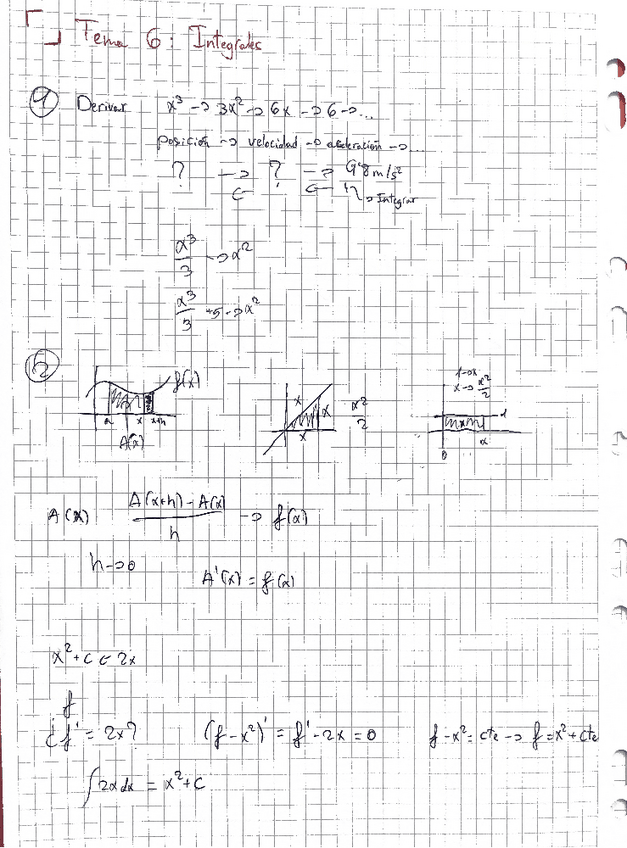 Tema 6: Integrales
① Derivar x³ → 3x² → 6x → 6 → ...
posición → velocidad → aceleración → ...
? → ? → 9'8 m/s²
← ← ↳ Integrar
x³/3 → x²
x³/3 + 5 → x²
f(x)
a x x+h
A(x)
x x x
x²/2
1 → x
x → x²/2
1
0 x
A(x) (A(x+h) - A(x))/h → f(x)
h → 0 A'(x) = f(x)
x² + c ← 2x
f
¿f' = 2x? (f - x²)' = f' - 2x = 0 f - x² = cte → f = x² + cte
∫ 2x dx = x² + C